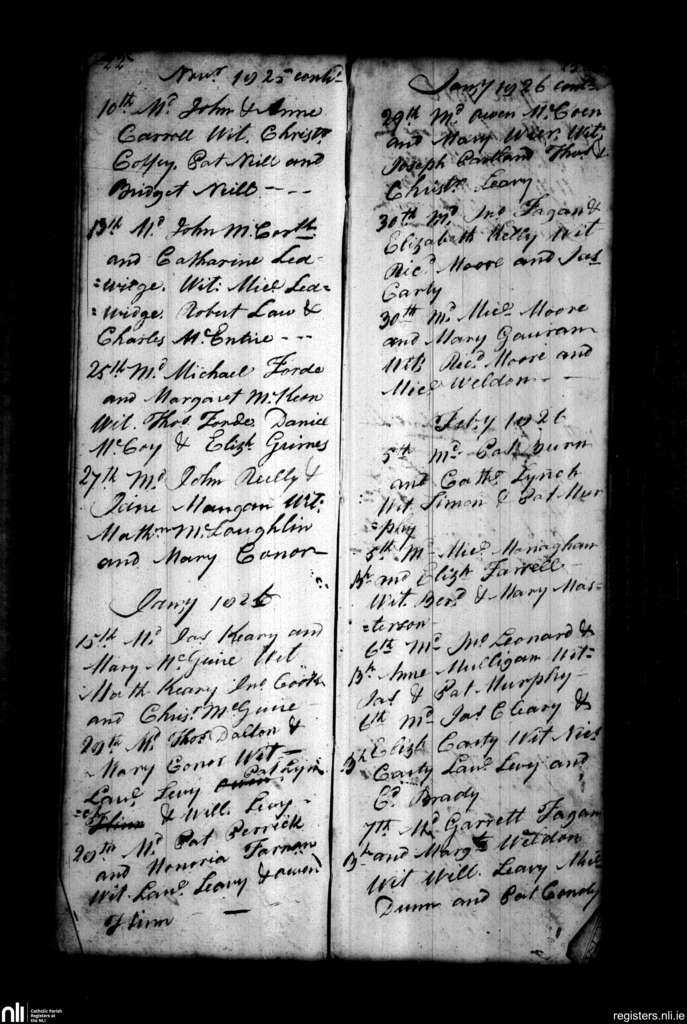 Novr 1825 contd
10th Md John & Anne
Carroll Wit. Christr
Coffey, Pat Nill and
Bridget Neill - - -
13th Md John McCorth
and Catharine Led-
=widge. Wit: Micl Led=
=widge. Robert Law &
Charles McEntire - - -
25th Md Michael Forde
and Margaret McKeon
Wit. Thos Forde, Daniel
McCoy & Elizh Grimes
27th Md John Reilly &
Jane Mangan Wit:
Mathw McLaughlin
and Mary Conor
Jany 1826
15th Md Jas Keary and
Mary McGuire Wit
Math Keary Jno
and Christ McGuire
29th Md Thos Dalton &
Mary Conor Wit
Lawe Levy Pat Lyn
& Will. Levy
29th Md Pat Derrick
and Honoria Farnan
Wit. Lawe Leavy & Owen
Flinn
Jany 1826 contd
29th Md Owen McCoen
and Mary Weer. Wit:
Joseph Partland Thos &
Christr Leavy
30th Md Jno Fagan &
Elizabeth Kelly Wit
Ricd Moore and Jas
Carty
30th Md Micl Moore
and Mary Gauram
Wit Ricd Moore and
Micl Weldon - -
Feby 1826
5th Md Pat
and Cathe Lynch
Wit. Simon & Pat Mur
=phy
5th Md Micl Monaghan
and Elizh Farrell
Wit. Bend & Mary Mas-
=terson
6th Md Jno Leonard &
Anne Mulligan Wit-
Jas & Pat Murphy-
6th Md Jas Cleary &
Elizh Casty Wit
Casty Lawe Levy and
Ed Brady
7th Md Garrett Fagan
and Margt Weldon
Wit Will. Leavy
Dunn and Pat Conoly
nli
Catholic Parish
Registers at
the NLI
registers.nli.ie